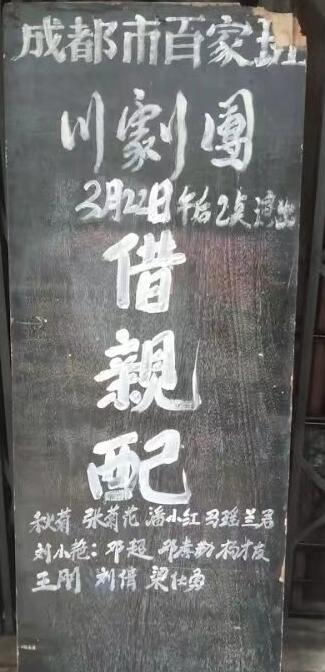 成都市百家班
川劇團
3月22日午后2点演出
借親配
秋菊 张菊花 潘小红 马瑶 兰君
刘小艳: 邓超 邱春勤 杨才友
王刚 刘倩 梁仕勇